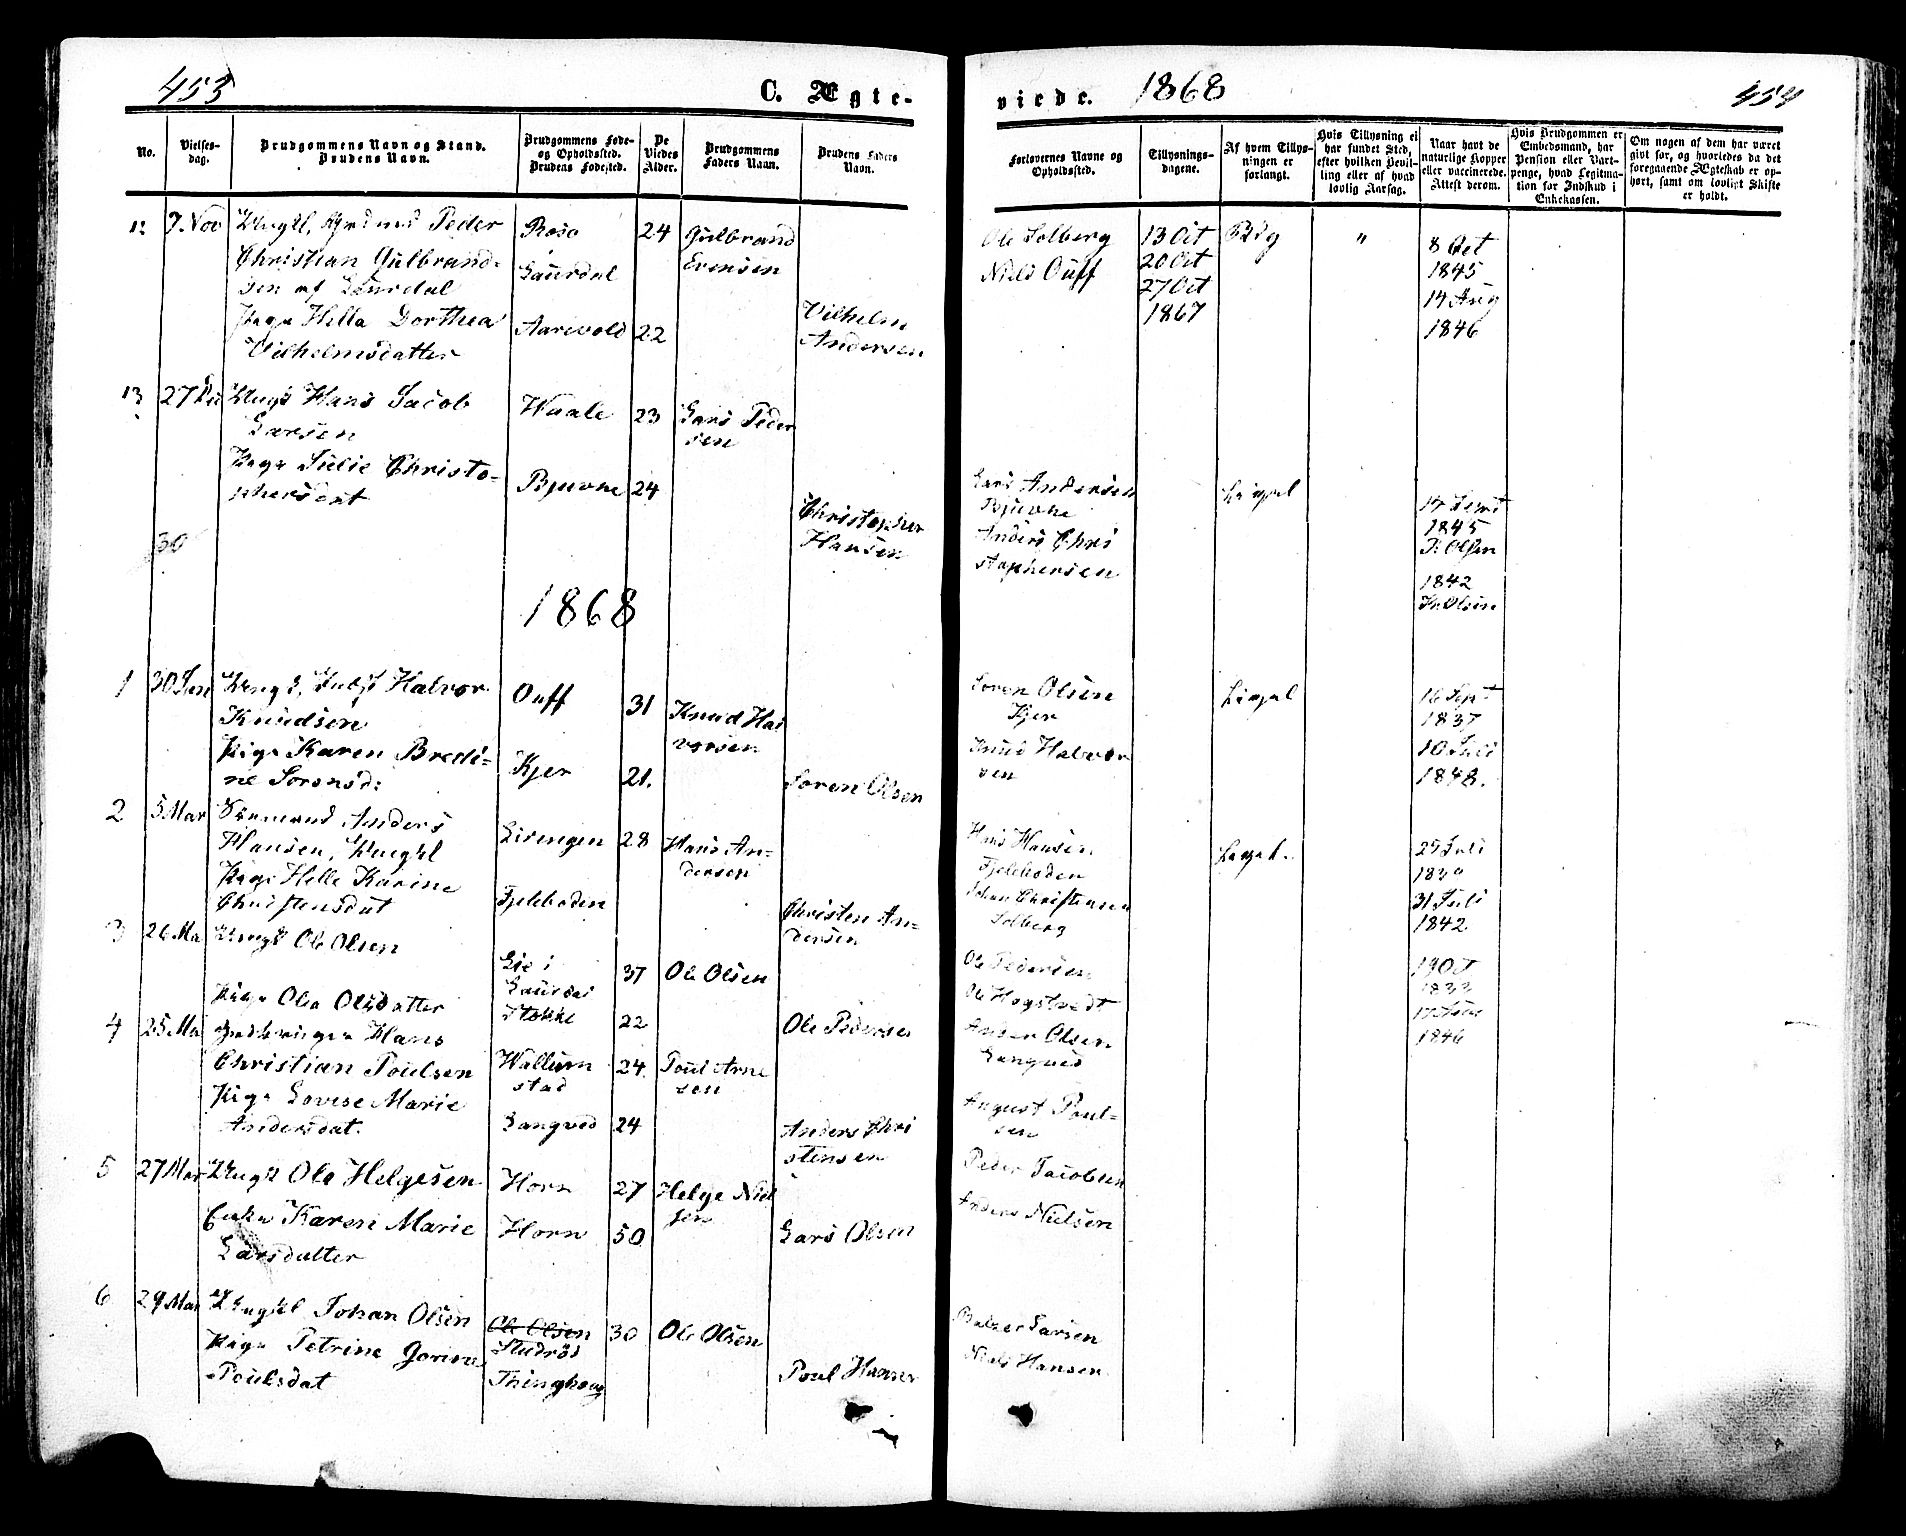 453
C. Ægte-
viede.
1868
454
No.
Vielses-
dag.
Brudgommens Navn og Stand.
Brudens Navn.
Brudgommens Føde-
og Opholdssted.
Brudens Fødested.
De
Viedes
Alder.
Brudgommens
Faders Navn.
Brudens Faders
Navn.
Forlovernes Navne og
Opholdssted.
Tillysnings-
dagene.
Af hvem Tillys-
ningen er
forlangt.
Hvis Tillysning ei
har fundet Sted,
efter hvilken Bevil-
ling eller af hvad
lovlig Aarsag.
Naar havt de
naturlige Kopper
eller vaccinerede.
Attest derom.
Hvis Brudgommen er
Embedsmand, har
Pension eller Vart-
penge, hvad Legitima-
tion for Indskud i
Enkekassen.
Om nogen af dem har været
gift før, og hvorledes da det
foregaaende Ægteskab er op-
hørt, samt om lovligt Skifte
er holdt.
12 7. Nov Ungkl, Peder
Christian Gulbrand-
sen af Laurdal
Pige Hella Dorthea
Vilhelmsdatter
Laurdal
Aarevold
24
22
Gulbrand
Evensen
Vilhelm
Andersen
Ole Solberg
Niels Ouff
13 Oct
20 Oct
27 Oct
1867
"
8 Oct
1845
14 Aug
1846
13 27 Ungk Hans Jacob
Larsen
Pige Julie Christo-
phersdat
Waale
Bjuvne
23
24
Lars Peder
sen
Christopher
Hansen
Lars Andersen
Bjuvne
Anders Chri
stophersen
14 Sept
1845
P. Olsen
1842
30
1868
1 30 Jan Ungk, Halvor
Knudsen
Pige Karen Bredi-
ne Sorensd:
Ouff
Kjer
31
21.
Knud Hal
vorsen
Soren Olsen
Soren Olsen
Kjer
Knud Halvor
sen
16 Sept
1837
10 Juli
1848.
2 5 Mar Anders
Hansen, Ungkl
Pige Helle Karine
Christensdat
Lirengen
Fjeleboden
28
Hans An-
dersen
Christen An-
dersen
Hans Hansen
Fjeleboden
Johan Christensen
Solberg
Juli
31 Juli
1842
3 26 Ma Ungk Ole Olsen
Pige Olea Olsdatter
Lie i
Laurdal
Stokke
37
22
Ole Olsen
Ole Pedersen
Ole Pedersen
Ole Hogstvedt
19 Oct
1846
4 25 Ma Hans
Christian Poulsen
Pige Lovise Marie
Andersdat.
Wallum
stad
Langved
24
24
Poul Arne
sen
Anders Chri
stensen
Anders Olsen
Langved
August Poul-
sen
5 27 Mar Ungk Ole Helgesen
Enke Karen Marie
Larsdatter
Horn
Horn
27
50
Helge Niel
sen
Lars Olsen
Peder Jacobsen
Anders Nielsen
6 29 Mar Ungkl Johan Olsen
Pige Petrine
Poulsdat
Ole Olsen
Thinghoug
30
Ole Olsen
Poul Hansen
Balzer Larsen
Niels Hansen